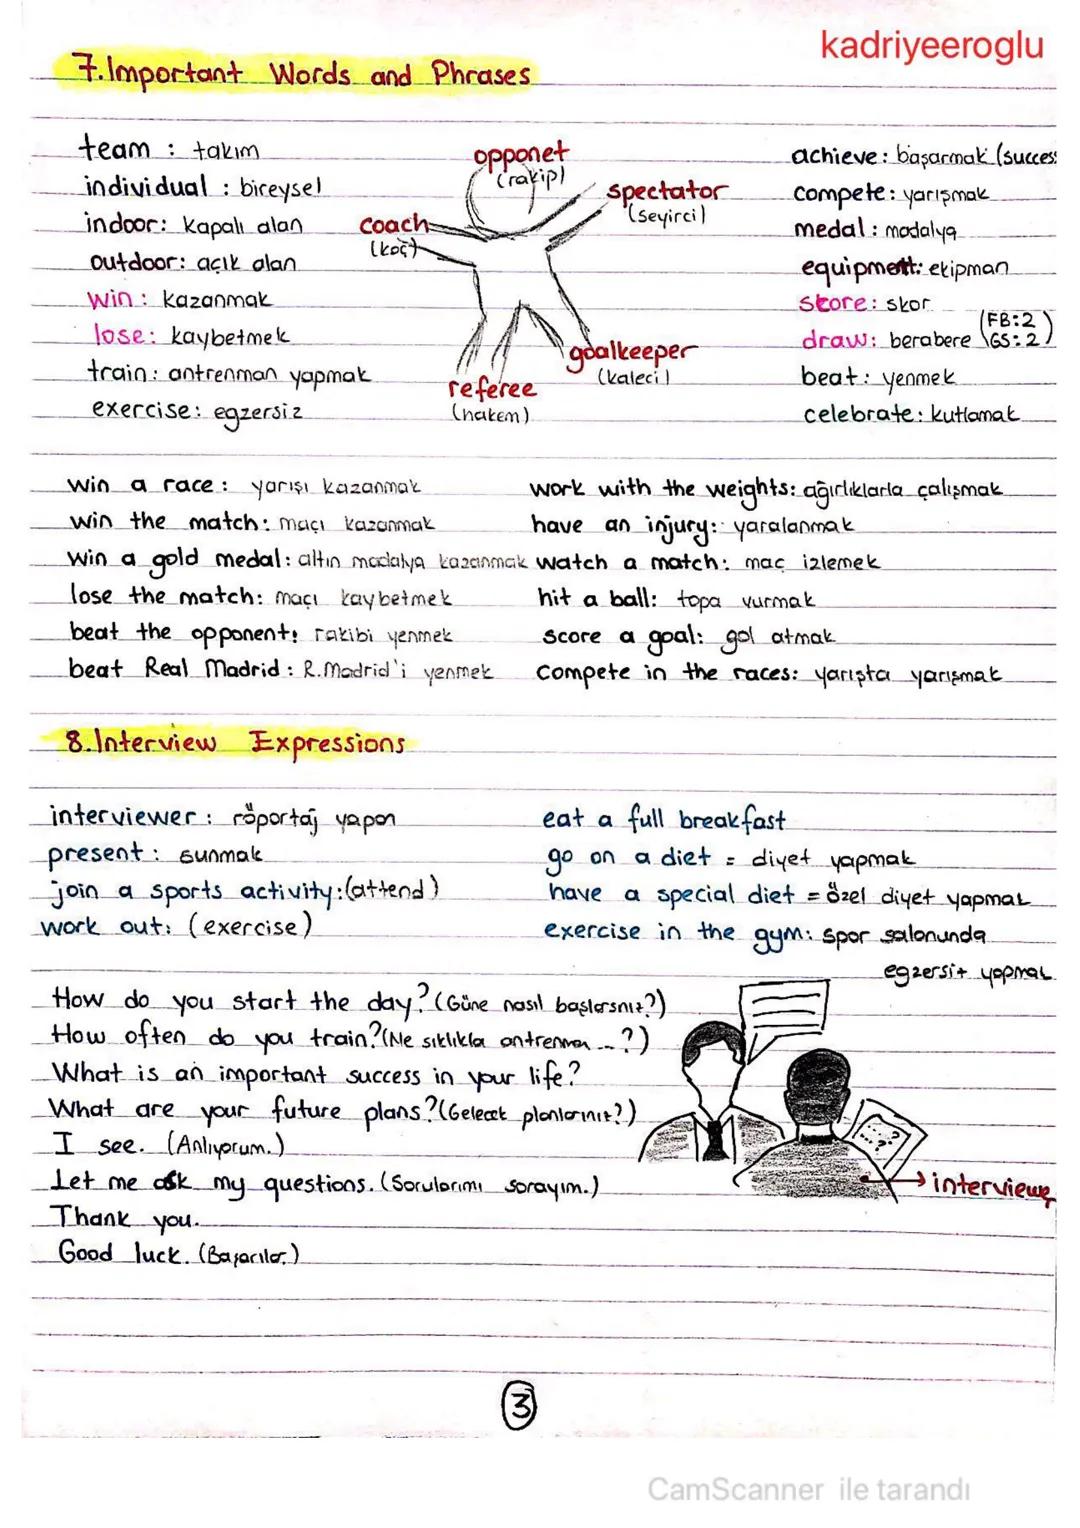 kadriyeeroglu
7.Important Words and Phrases
team : takım
individual : bireysel
indoor: kapalı alan
outdoor: açık alan
win: kazanmak
lose: kaybetmek
train: antrenman yapmak
exercise: egzersiz
opponet
(rakip)
spectator
(seyirci)
coach
(koç)
goalkeeper
(kaleci)
referee
(hakem)
achieve: başarmak (succes
compete: yarışmak
medal: madalya
equipment: ekipman
score: skor
draw: berabere (FB:2
GS:2)
beat: yenmek
celebrate: kutlamak
win a race: yarışı kazanmak
win the match: maçı kazanmak
win a gold medal: altın madalya kazanmak
lose the match: maçı kaybetmek
beat the opponent: rakibi yenmek
beat Real Madrid: R.Madrid'i yenmek
work with the weights: ağırlıklarla çalışmak
have an injury: yaralanmak
watch a match: maç izlemek
hit a ball: topa vurmak
score a goal: gol atmak
compete in the races: yarışta yarışmak
8.Interview Expressions
interviewer: röportaj yapan
present: sunmak
join a sports activity:(attend)
work out: (exercise)
eat a full breakfast
go on a diet = diyet yapmak
have a special diet = özel diyet yapmak
exercise in the gym: spor salonunda
egzersiz yapmak
How do you start the day? (Güne nasıl başlarsınız?)
How often do you train? (Ne sıklıkla antrenman ...?)
What is an important success in your life?
What are your future plans? (Gelecek planlarınız?)
I see. (Anlıyorum.)
Let me ask my questions. (Sorularımı sorayım.)
Thank you.
Good luck. (Başarılar.)
interviewe
3
CamScanner ile tarandı